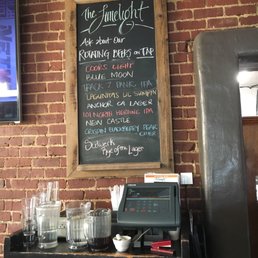 The Limelight
Ask About Our
ROTATING BEERS ON TAP
COORS LIGHT
BLUE MOON
PACK 7 PARKS IPA
LAGUNITAS LIL SUMPIN
ANCHOR CA LAGER
LOJ NORTH HEROINE IPA
NEW CASTLE
CRISPIN BLACKBERRY PEAR
CIDER
Sudwerk
Pipe of the Lager